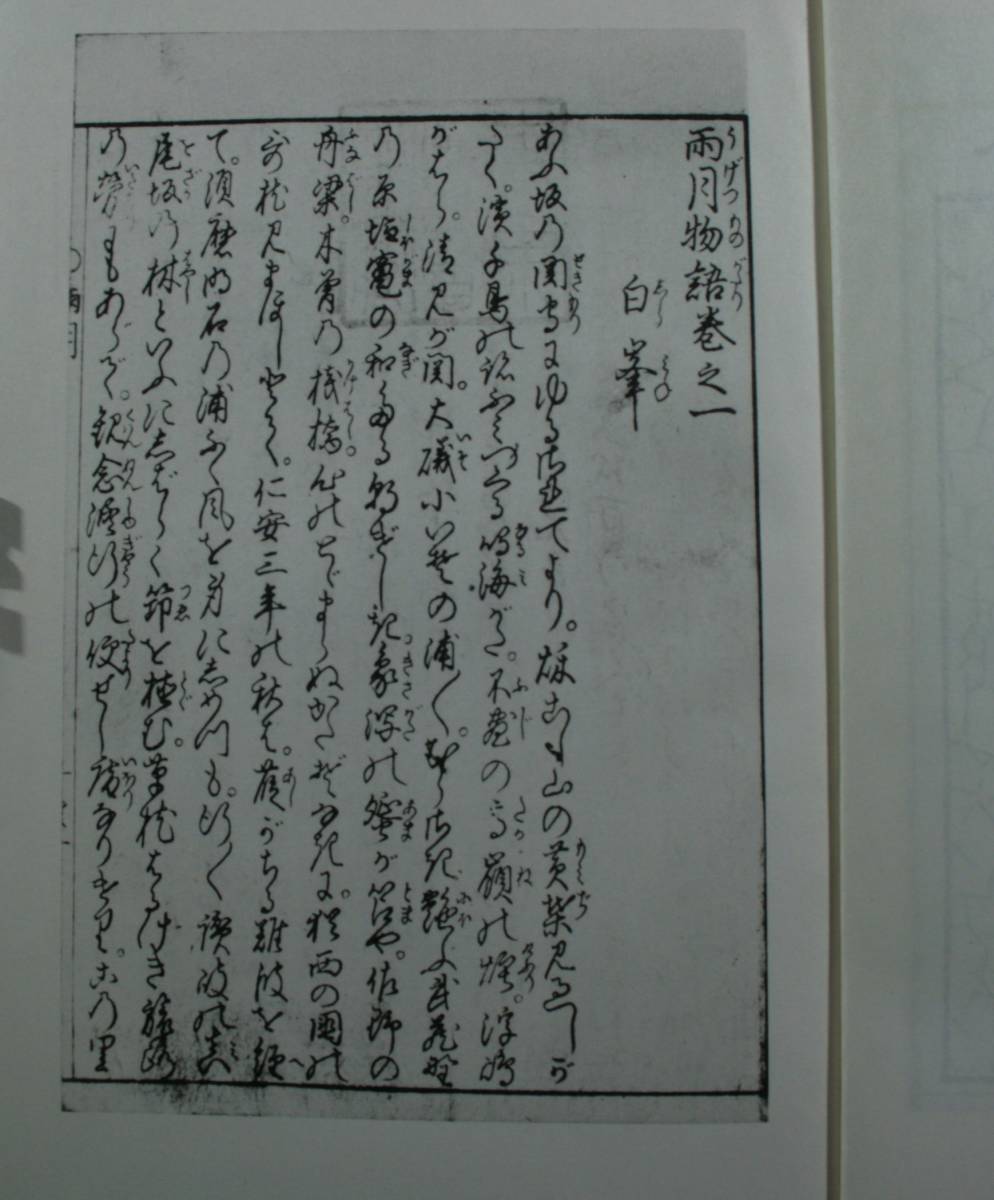 雨月物語巻之一
白峯
あふ坂の関守にゆるされてより。秋こし山の黄葉見過しが
たく。濱千鳥の跡ふみつくる鳴海がた。不盡の高嶺の煙。浮嶋
がはら。清見が関。大礒小いその浦〳〵。むらさき艶ふ武蔵野
の原。塩竈の和たる朝げしき。象潟の蜑が笘や。佐野の
舟梁。木曽の桟橋。心のとゞまらぬかたぞなきに。猶西の国の
哥枕見まほしとて。仁安三年の秋は。葭がちる難波を経
て。須磨明石の浦ふく風を身にしめつも。行〳〵讃岐の真
尾坂の林といふにしばらく笻を植む。草枕はるけき旅路
の労にもあらで。観念修行の便せし庵なりけり。この里